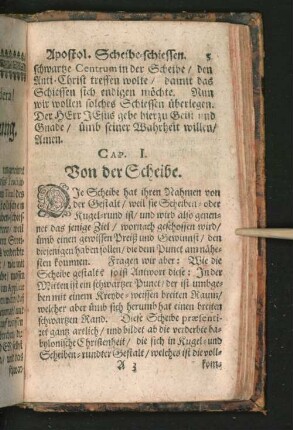 Apostol. Scheibe-schiessen. 5
schwartze Centrum in der Scheibe / den
Anti-Christ treffen wolte / damit das
Schiessen sich endigen möchte. Nun
wir wollen solches Schiessen überlegen.
Der HErr JEsus gebe hierzu Geist und
Gnade / ümb seiner Wahrheit willen /
Amen.
CAP. I.
Von der Scheibe.
DJe Scheibe hat ihren Nahmen von
der Gestalt / weil sie Scheiben- oder
Kugel-rund ist / und wird also genen-
net das jenige Ziel / wornach geschossen wird /
ümb einen gewissen Preiß und Gewinnst / den
derjenigen haben sollen / die dem Punct am näh-
sten kommen. Fragen wir aber: Wie die
Scheibe gestalt? so ist Antwort diese: In der
Mitten ist ein schwartzer Punct / der ist umbge-
ben mit einem Kreyde-weissen breiten Raum /
welcher aber ümb sich herumb hat einen breiten
schwartzen Rand. Diese Scheibe præsenti-
ret gantz artlich / und bildet ab die verderbte ba-
bylonische Christenheit / die sich in Kugel- und
Scheiben-rundter Gestalt / welches ist die voll-
A 3 kom-